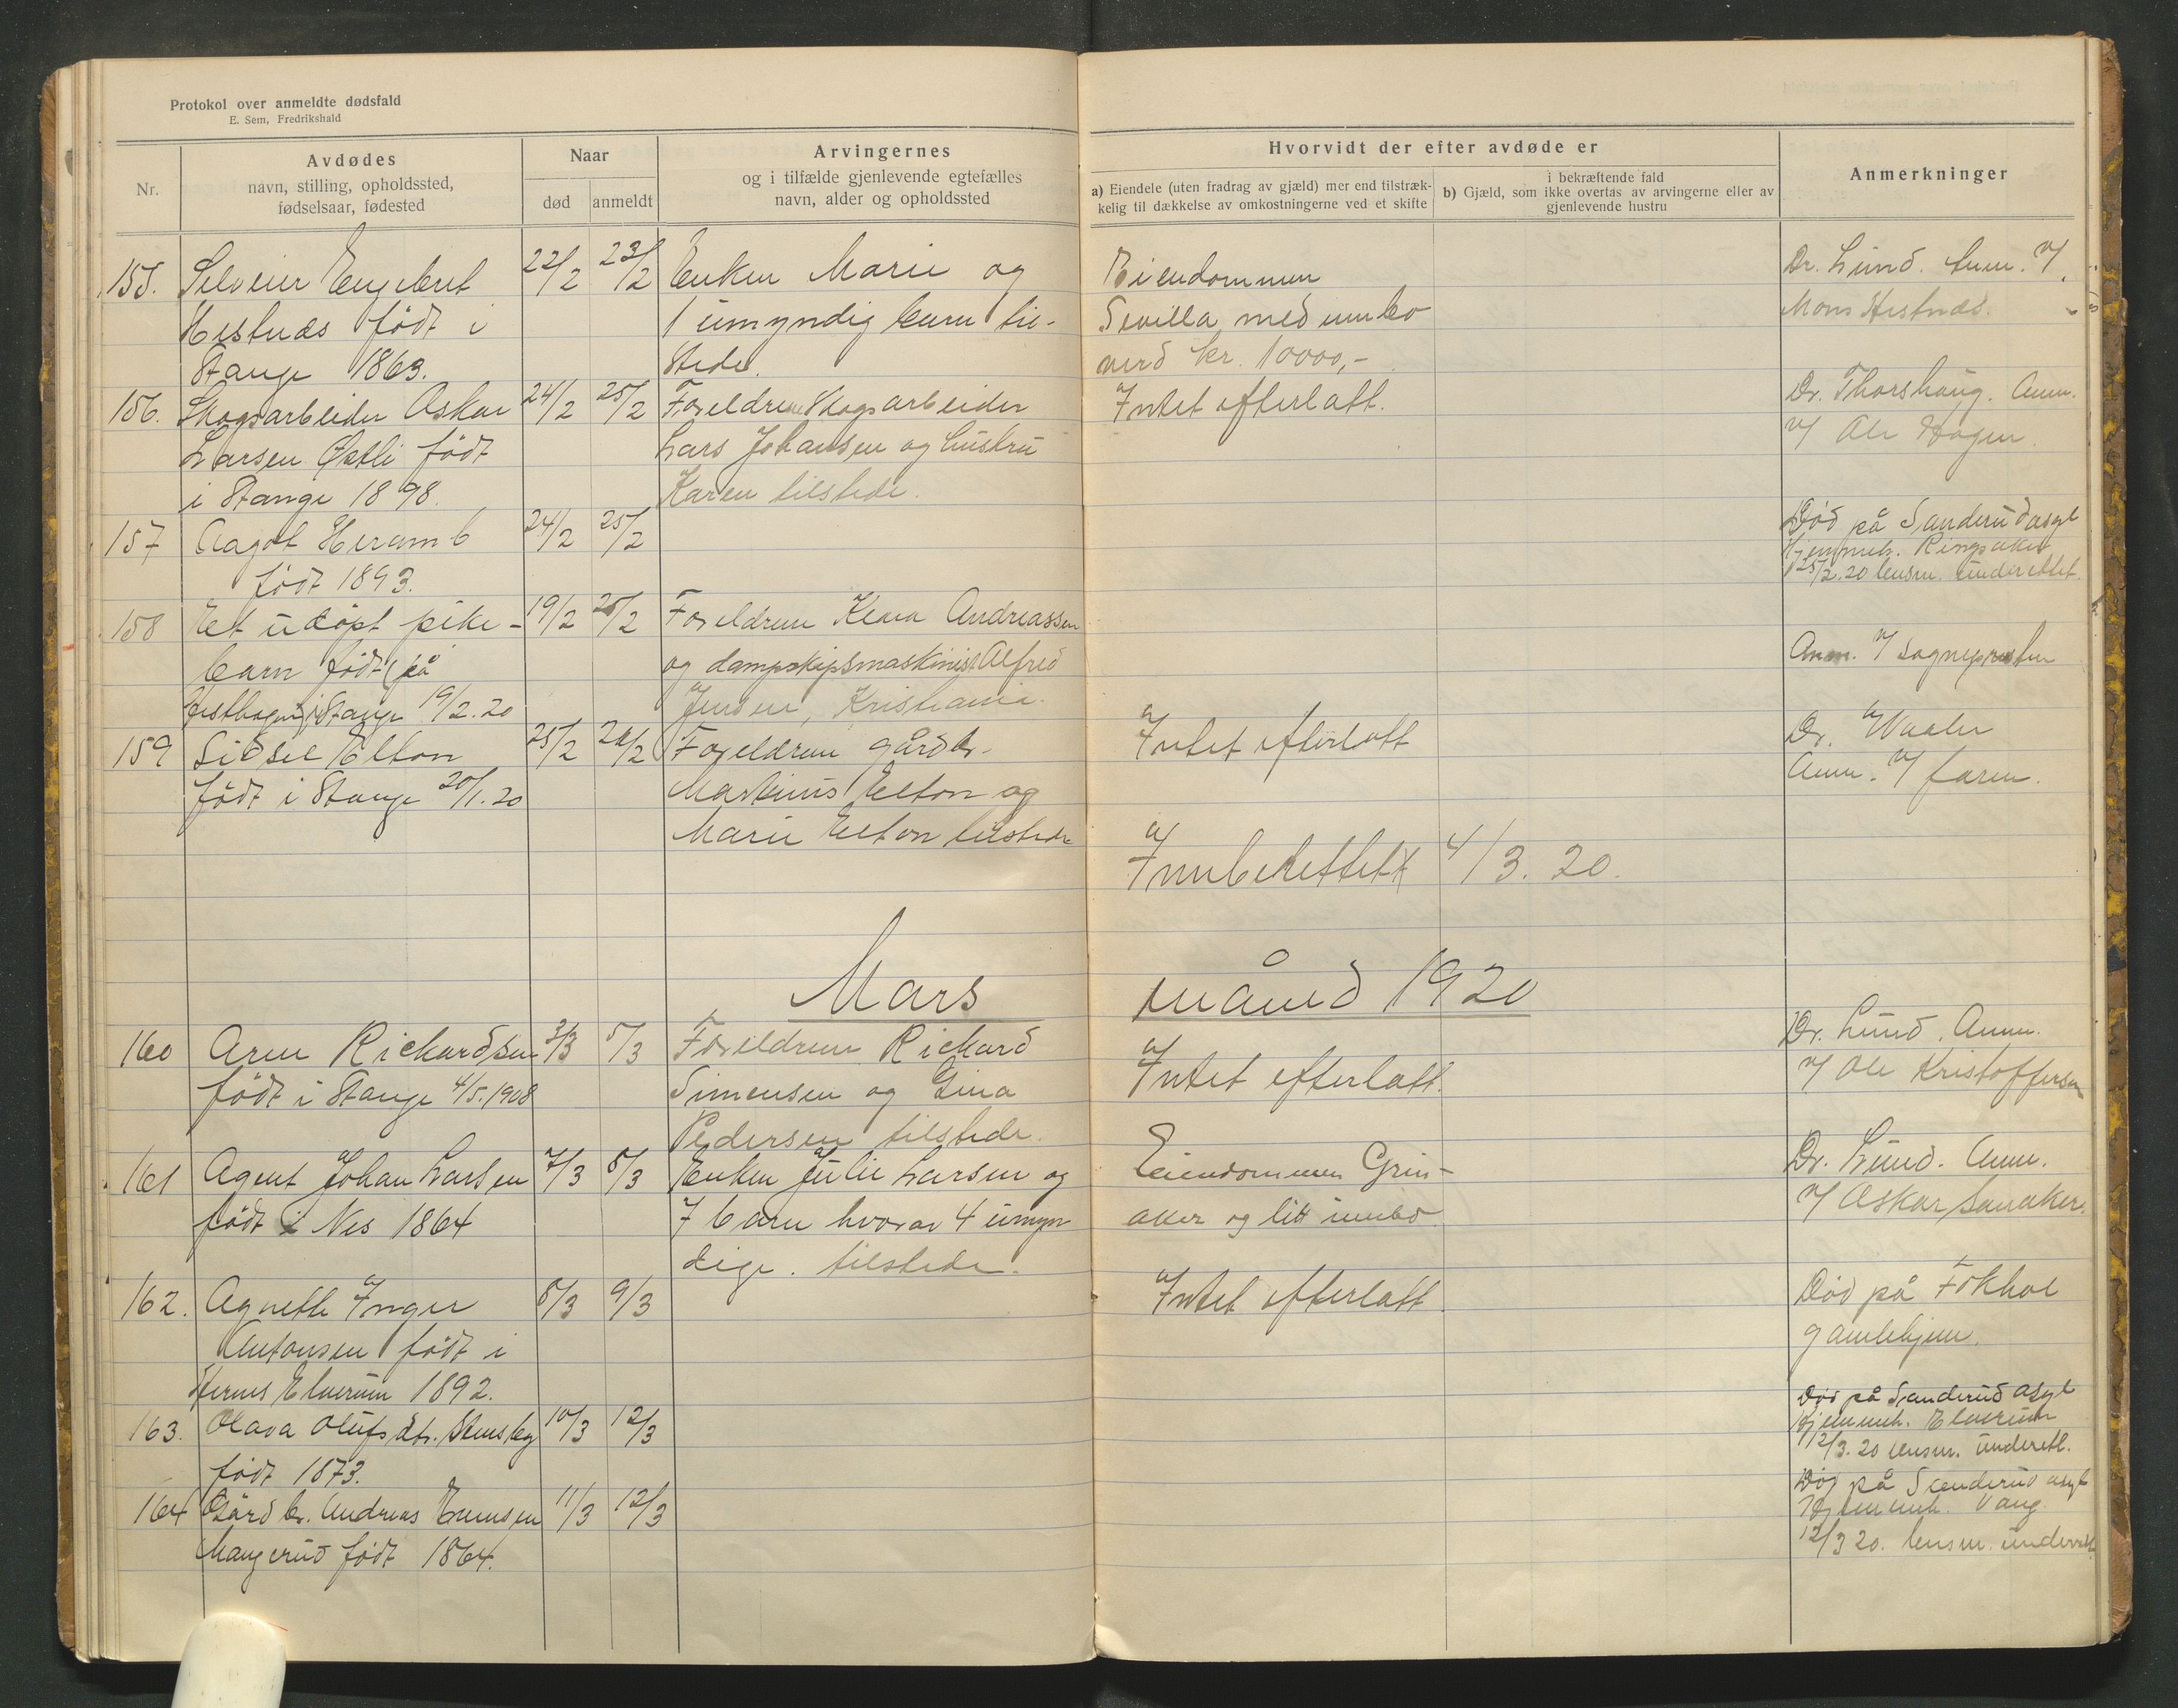 Protokol over anmeldte dødsfald
E. Sem, Fredrikshald
Nr.
Avdødes
navn, stilling, opholdssted,
fødselsaar, fødested
Naar
død
anmeldt
Arvingernes
og i tilfælde gjenlevende egtefælles
navn, alder og opholdssted
Hvorvidt der efter avdøde er
a) Eiendele (uten fradrag av gjæld) mer end tilstræk-
kelig til dækkelse av omkostningerne ved et skifte
i bekræftende fald
b) Gjæld, som ikke overtas av arvingerne eller av
gjenlevende hustru
Anmerkninger
155. Selveier Engebret 22/2 23/2 Enken Marie og
Hestnæs født i 1 umyndig barn til-
Stange 1863. stede.
Eiendommen
Sevilla med innbo
verd kr. 10000,-
Dr. Lund. Anm. v/
Mons Hestnæs.
156. Skogsarbeider Oskar 24/2 25/2 Foreldrene Skogsarbeider
Larsen Østli født Lars Johansen og hustru
i Stange 1898. Karen tilstede.
Intet efterlatt.
Dr. Thorshaug. Anm.
v/ Ole Hagen.
157 Aagot Heramb 24/2 25/2
født 1893.
Død på Sanderud asyl
Hjemmeh. Ringsaker
25/2.20 lensm. underettet.
158 Et udøpt pike- 19/2 25/2 Foreldrene Klara Andreassen
barn født på og dampskipsmaskinist Alfred
i Stange 19/2.20 Jensen, Kristiania.
Anm. v/ sognepresten
159 Sidsel Elton 25/2 26/2 Foreldrene gårdbr.
født i Stange 20/1.20 Martinus Elton og
Marie Elton tilstede
Intet efterlatt
Dr. Waaler
Anm. v/ faren.
Innberettet 4/3. 20.
Mars måned 1920
160 Arne Richardsen 3/3 5/3 Foreldrene Richard
født i Stange 4/5.1908 Simensen og Gina
Pedersen tilstede.
Intet efterlatt.
Dr. Lund. Anm.
v/ Ole Kristoffersen
161 Agent Johan Larsen 7/3 8/3 Enken Julie Larsen og
født i Nes 1864 7 barn hvorav 4 umyn
dige. tilstede.
Eiendommen Grin-
aker og litt innbo.
Dr. Lund. Anm.
v/ Oskar Sanaker.
162. Agnethe Inger 8/3 9/3
Antonsen født i
Hernes Elverum 1892.
Intet efterlatt
Død på Fokhol
gamlehjem.
163. Olava Olufsdtr. Stensby 10/3 12/3
født 1873.
Død på Sanderud asyl
Hjemmeh. Elverum
12/3.20 lensm. underett.
164 Gårdbr. Andreas Evensen 11/3 12/3
Mangerud født 1864.
Død på Sanderud asyl
Hjemmeh. Vang.
12/3 20. lensm. underrett.